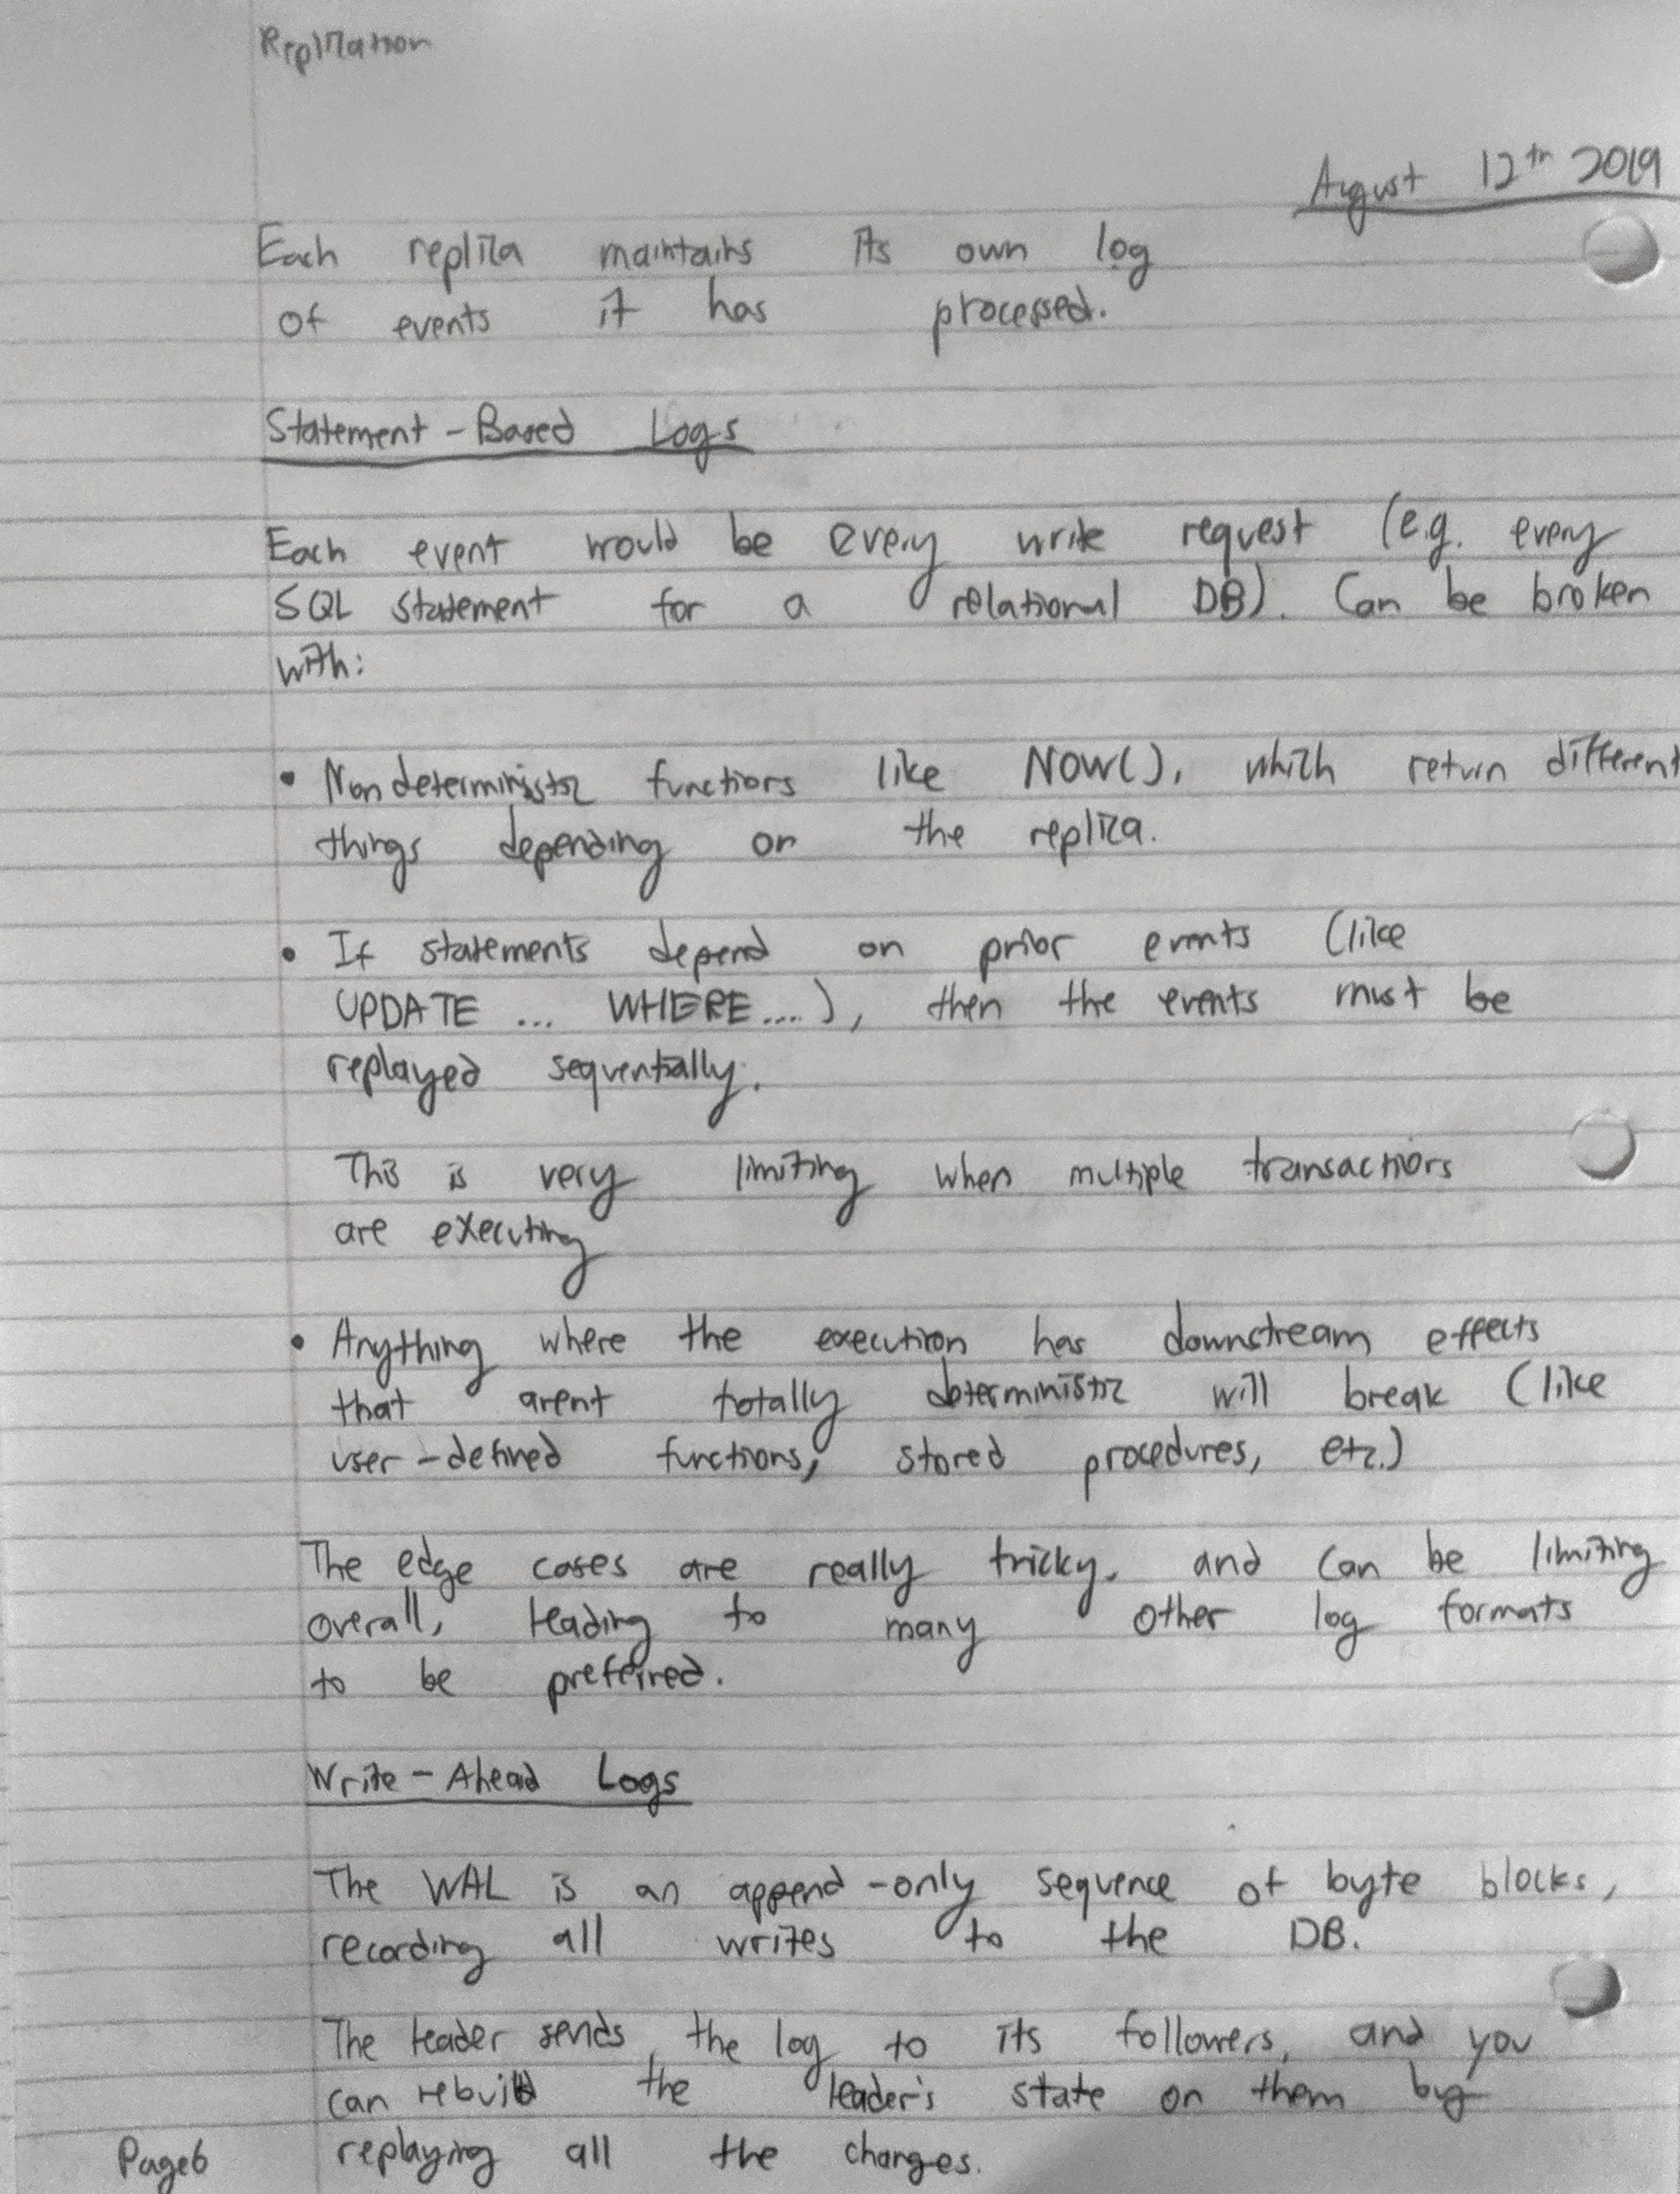 Replication
August 12th 2019
Each replica maintains its own log
of events it has processed.
Statement-Based Logs
Each event would be every write request (e.g. every
SQL statement for a relational DB). Can be broken
with:
• Nondeterministic functions like NOW(), which return different
things depending on the replica.
• If statements depend on prior events (like
UPDATE ... WHERE....), then the events must be
replayed sequentially.
This is very limiting when multiple transactions
are executing
• Anything where the execution has downstream effects
that arent totally deterministic will break (like
user-defined functions, stored procedures, etc.)
The edge cases are really tricky, and can be limiting
overall, leading to many other log formats
to be preferred.
Write-Ahead Logs
The WAL is an append-only sequence of byte blocks,
recording all writes to the DB.
The leader sends the log to its followers, and you
can rebuild the leader's state on them by
replaying all the changes.
Page 6